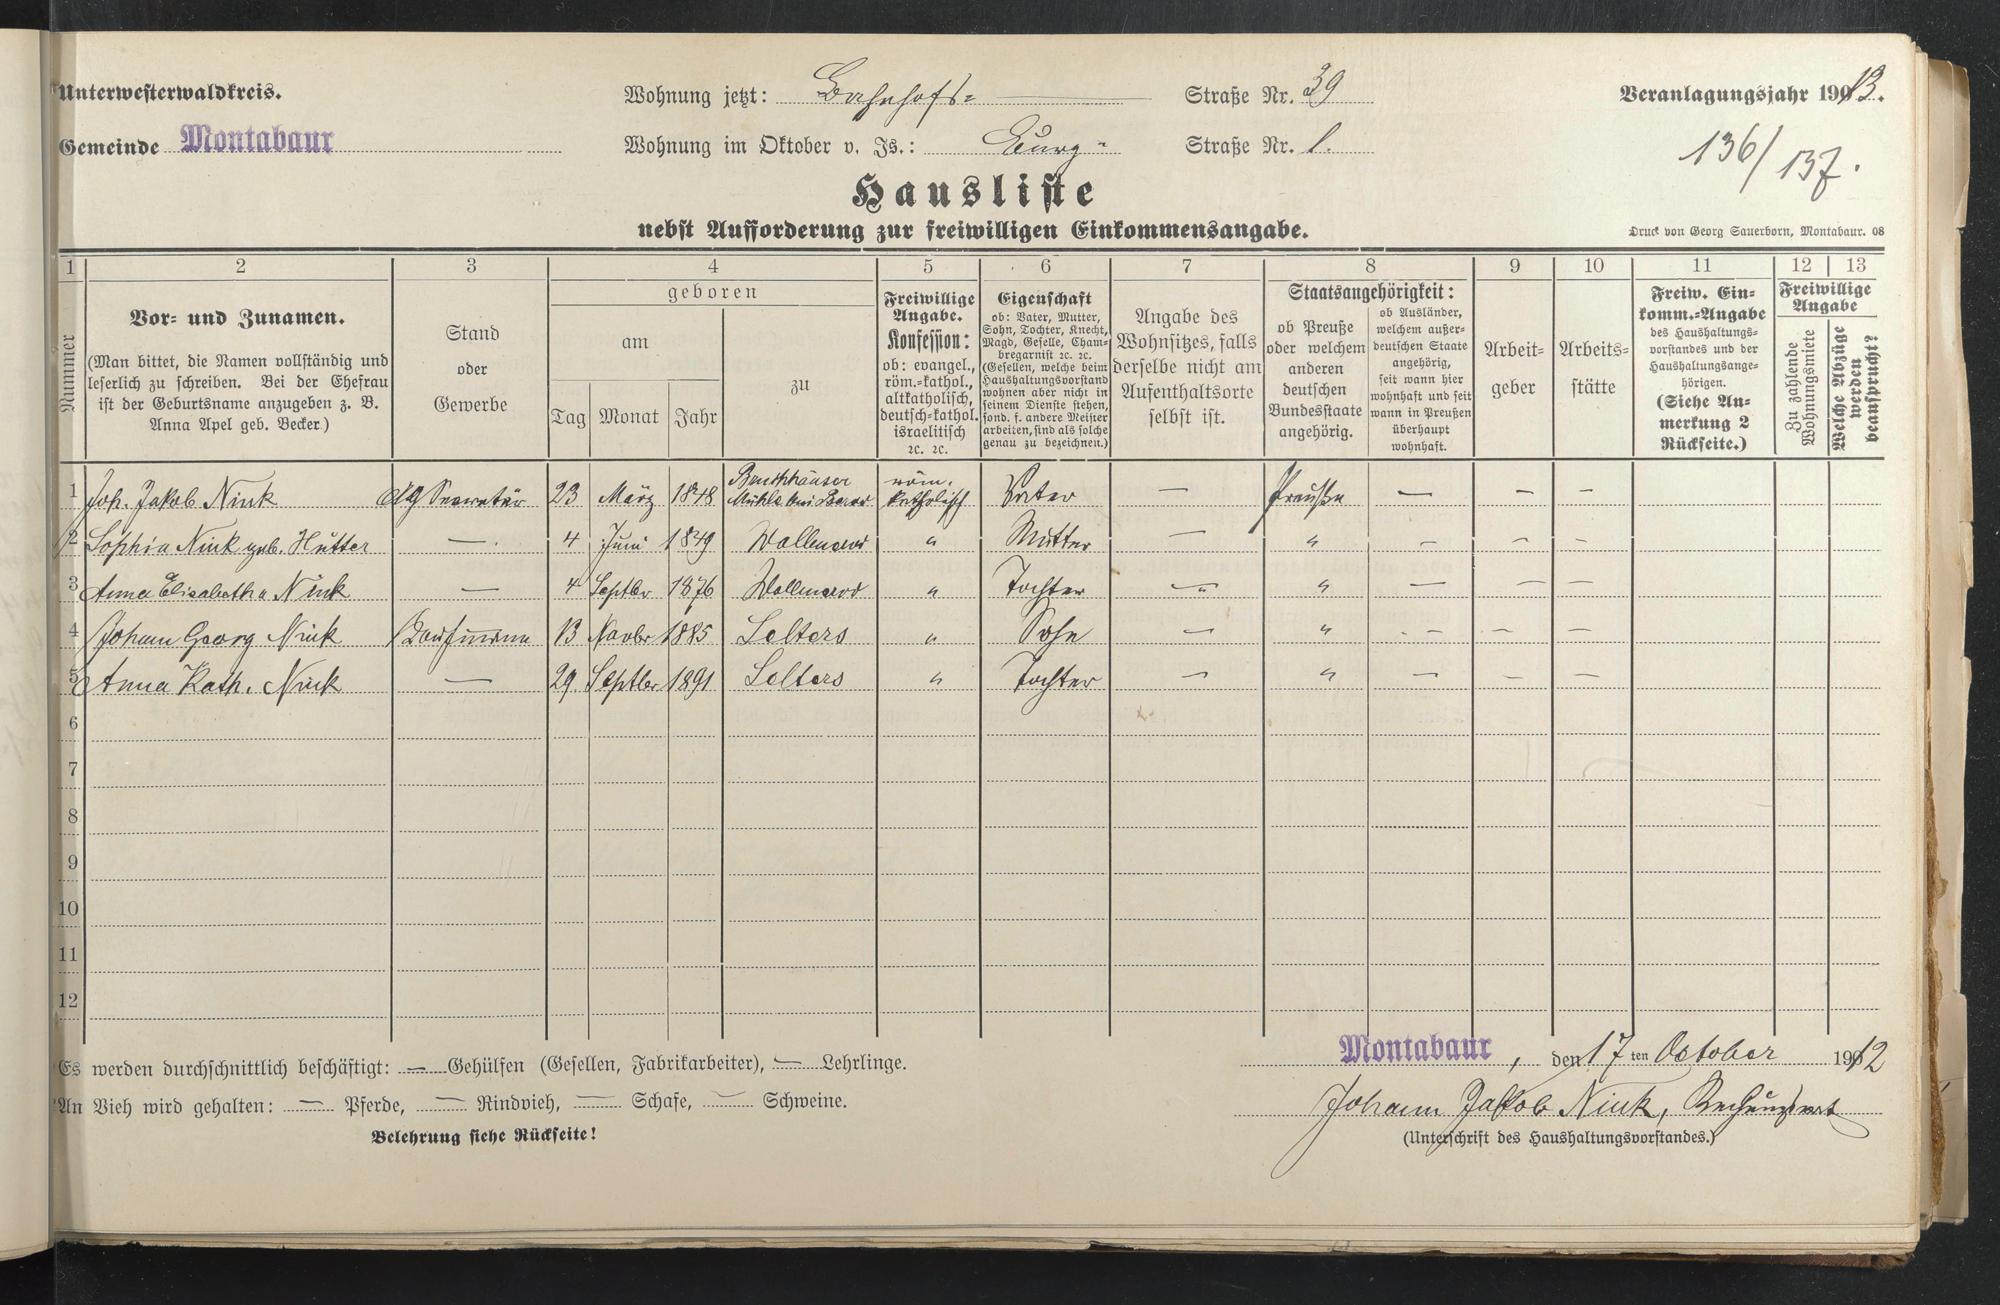 Unterwesterwaldkreis.
Wohnung jetzt: Bahnhofs= Straße Nr. 39
Veranlagungsjahr 1913.
Gemeinde Montabaur
Wohnung im Oktober v. Js.: Burg= Straße Nr. 1.
136/137.
Hausliste
nebst Aufforderung zur freiwilligen Einkommensangabe.
Druck von Georg Sauerborn, Montabaur. 08
1 2 3 4 5 6 7 8 9 10 11 12 13
Nummer
Vor= und Zunamen.
(Man bittet, die Namen vollständig und
leserlich zu schreiben. Bei der Ehefrau
ist der Geburtsname anzugeben z. B.
Anna Apel geb. Becker.)
Stand
oder
Gewerbe
geboren
am
Tag Monat Jahr
zu
Freiwillige
Angabe.
Konfession:
ob: evangel.,
röm.=kathol.,
altkatholisch,
deutsch=kathol.
israelitisch
2c. 2c.
Eigenschaft
ob: Vater, Mutter,
Sohn, Tochter, Knecht,
Magd, Geselle, Cham=
bregarnist 2c. 2c.
(Gesellen, welche beim
Haushaltungsvorstand
wohnen aber nicht in
seinem Dienste stehen,
sond. f. andere Meister
arbeiten, sind als solche
genau zu bezeichnen.)
Angabe des
Wohnsitzes, falls
derselbe nicht am
Aufenthaltsorte
selbst ist.
Staatsangehörigkeit:
ob Preuße
oder welchem
anderen
deutschen
Bundesstaate
angehörig.
ob Ausländer,
welchem außer=
deutschen Staate
angehörig,
seit wann hier
wohnhaft und seit
wann in Preußen
überhaupt
wohnhaft.
Arbeit=
geber
Arbeits=
stätte
Freiw. Ein=
komm.=Angabe
des Haushaltungs=
vorstandes und der
Haushaltungsange=
hörigen.
(Siehe An=
merkung 2
Rückseite.)
Freiwillige
Angabe
Zu zahlende
Wohnungsmiete
Welche Abzüge
werden
beansprucht?
1 Joh. Jakob Nink AG Secretär 23 März 1848 Mühle bei röm. katholisch Vater — Preuße — — —
2 Sophia Nink geb. Hütter —. 4 Juni 1849 Wallmerod " Mutter — " — — —
3 Anna Elisabetha Nink — 4 Septbr 1876 Wallmerod " Tochter — " — — —
4 Johann Georg Nink Kaufmann 13 Novbr 1885 Selters " Sohn — " — — —
5 Anna Kath. Nink — 29. Septbr 1891 Selters " Tochter — " — — —
6
7
8
9
10
11
12
Es werden durchschnittlich beschäftigt: — Gehülfen (Gesellen, Fabrikarbeiter), — Lehrlinge.
Montabaur, den 17ten October 1912
An Vieh wird gehalten: — Pferde, — Rindvieh, — Schafe, — Schweine.
Johann Jakob Nink,
Belehrung siehe Rückseite!
(Unterschrift des Haushaltungsvorstandes.)